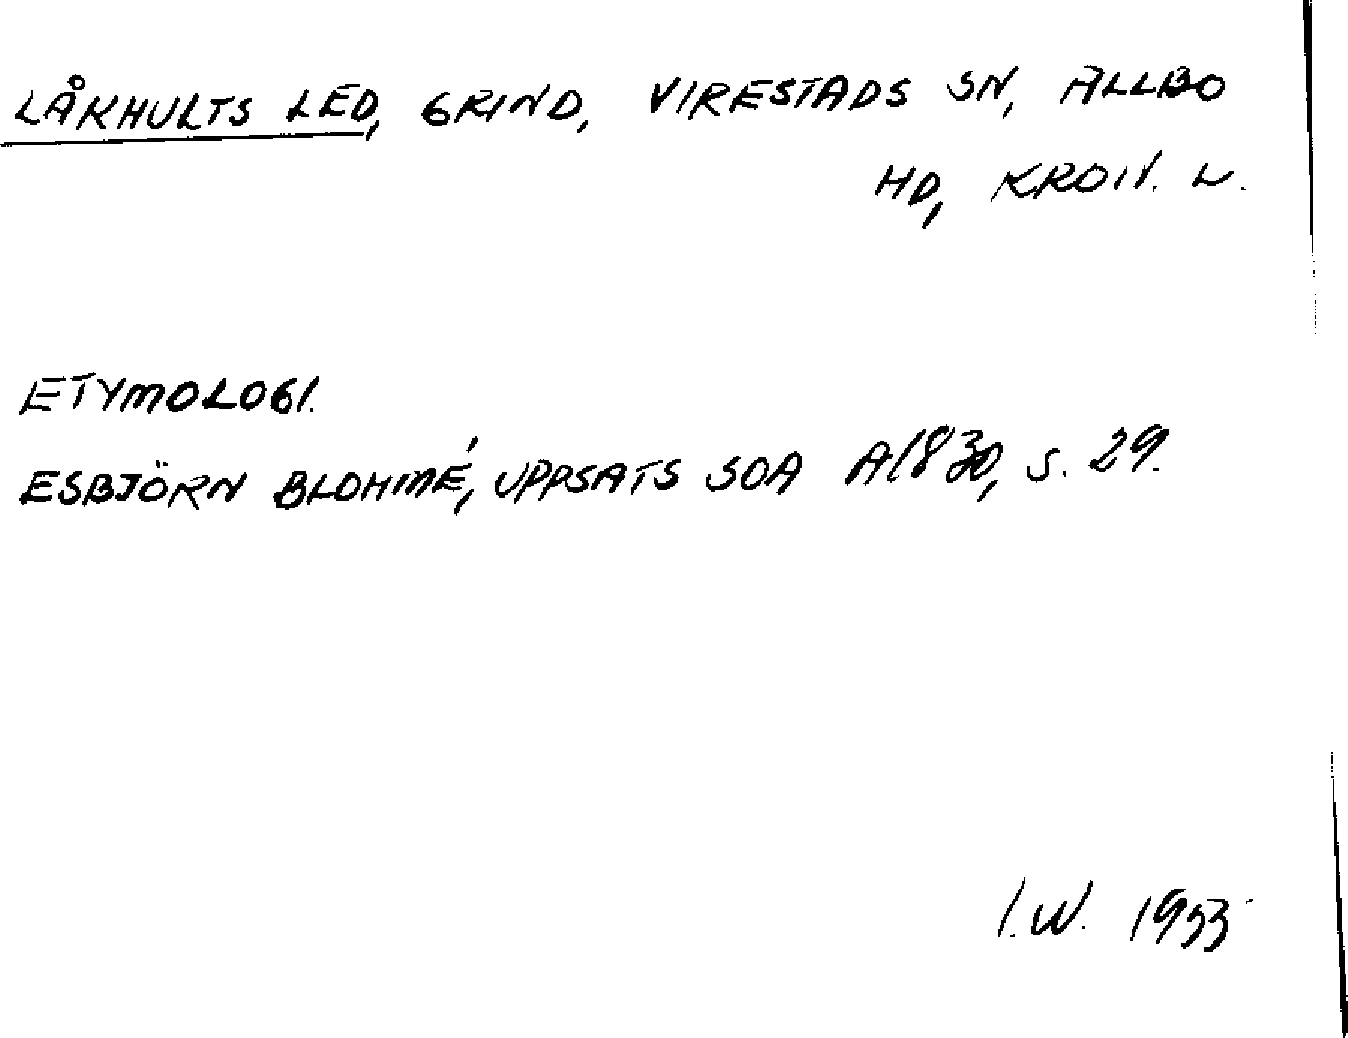 LÅKHULTS LED, GRIND, VIRESTADS SN, ALLBO
HD, KRON. L.
ETYMOLOGI.
ESBJÖRN BLOHMÉ, UPPSATS SOA A1830, s. 29.
I.W. 1953